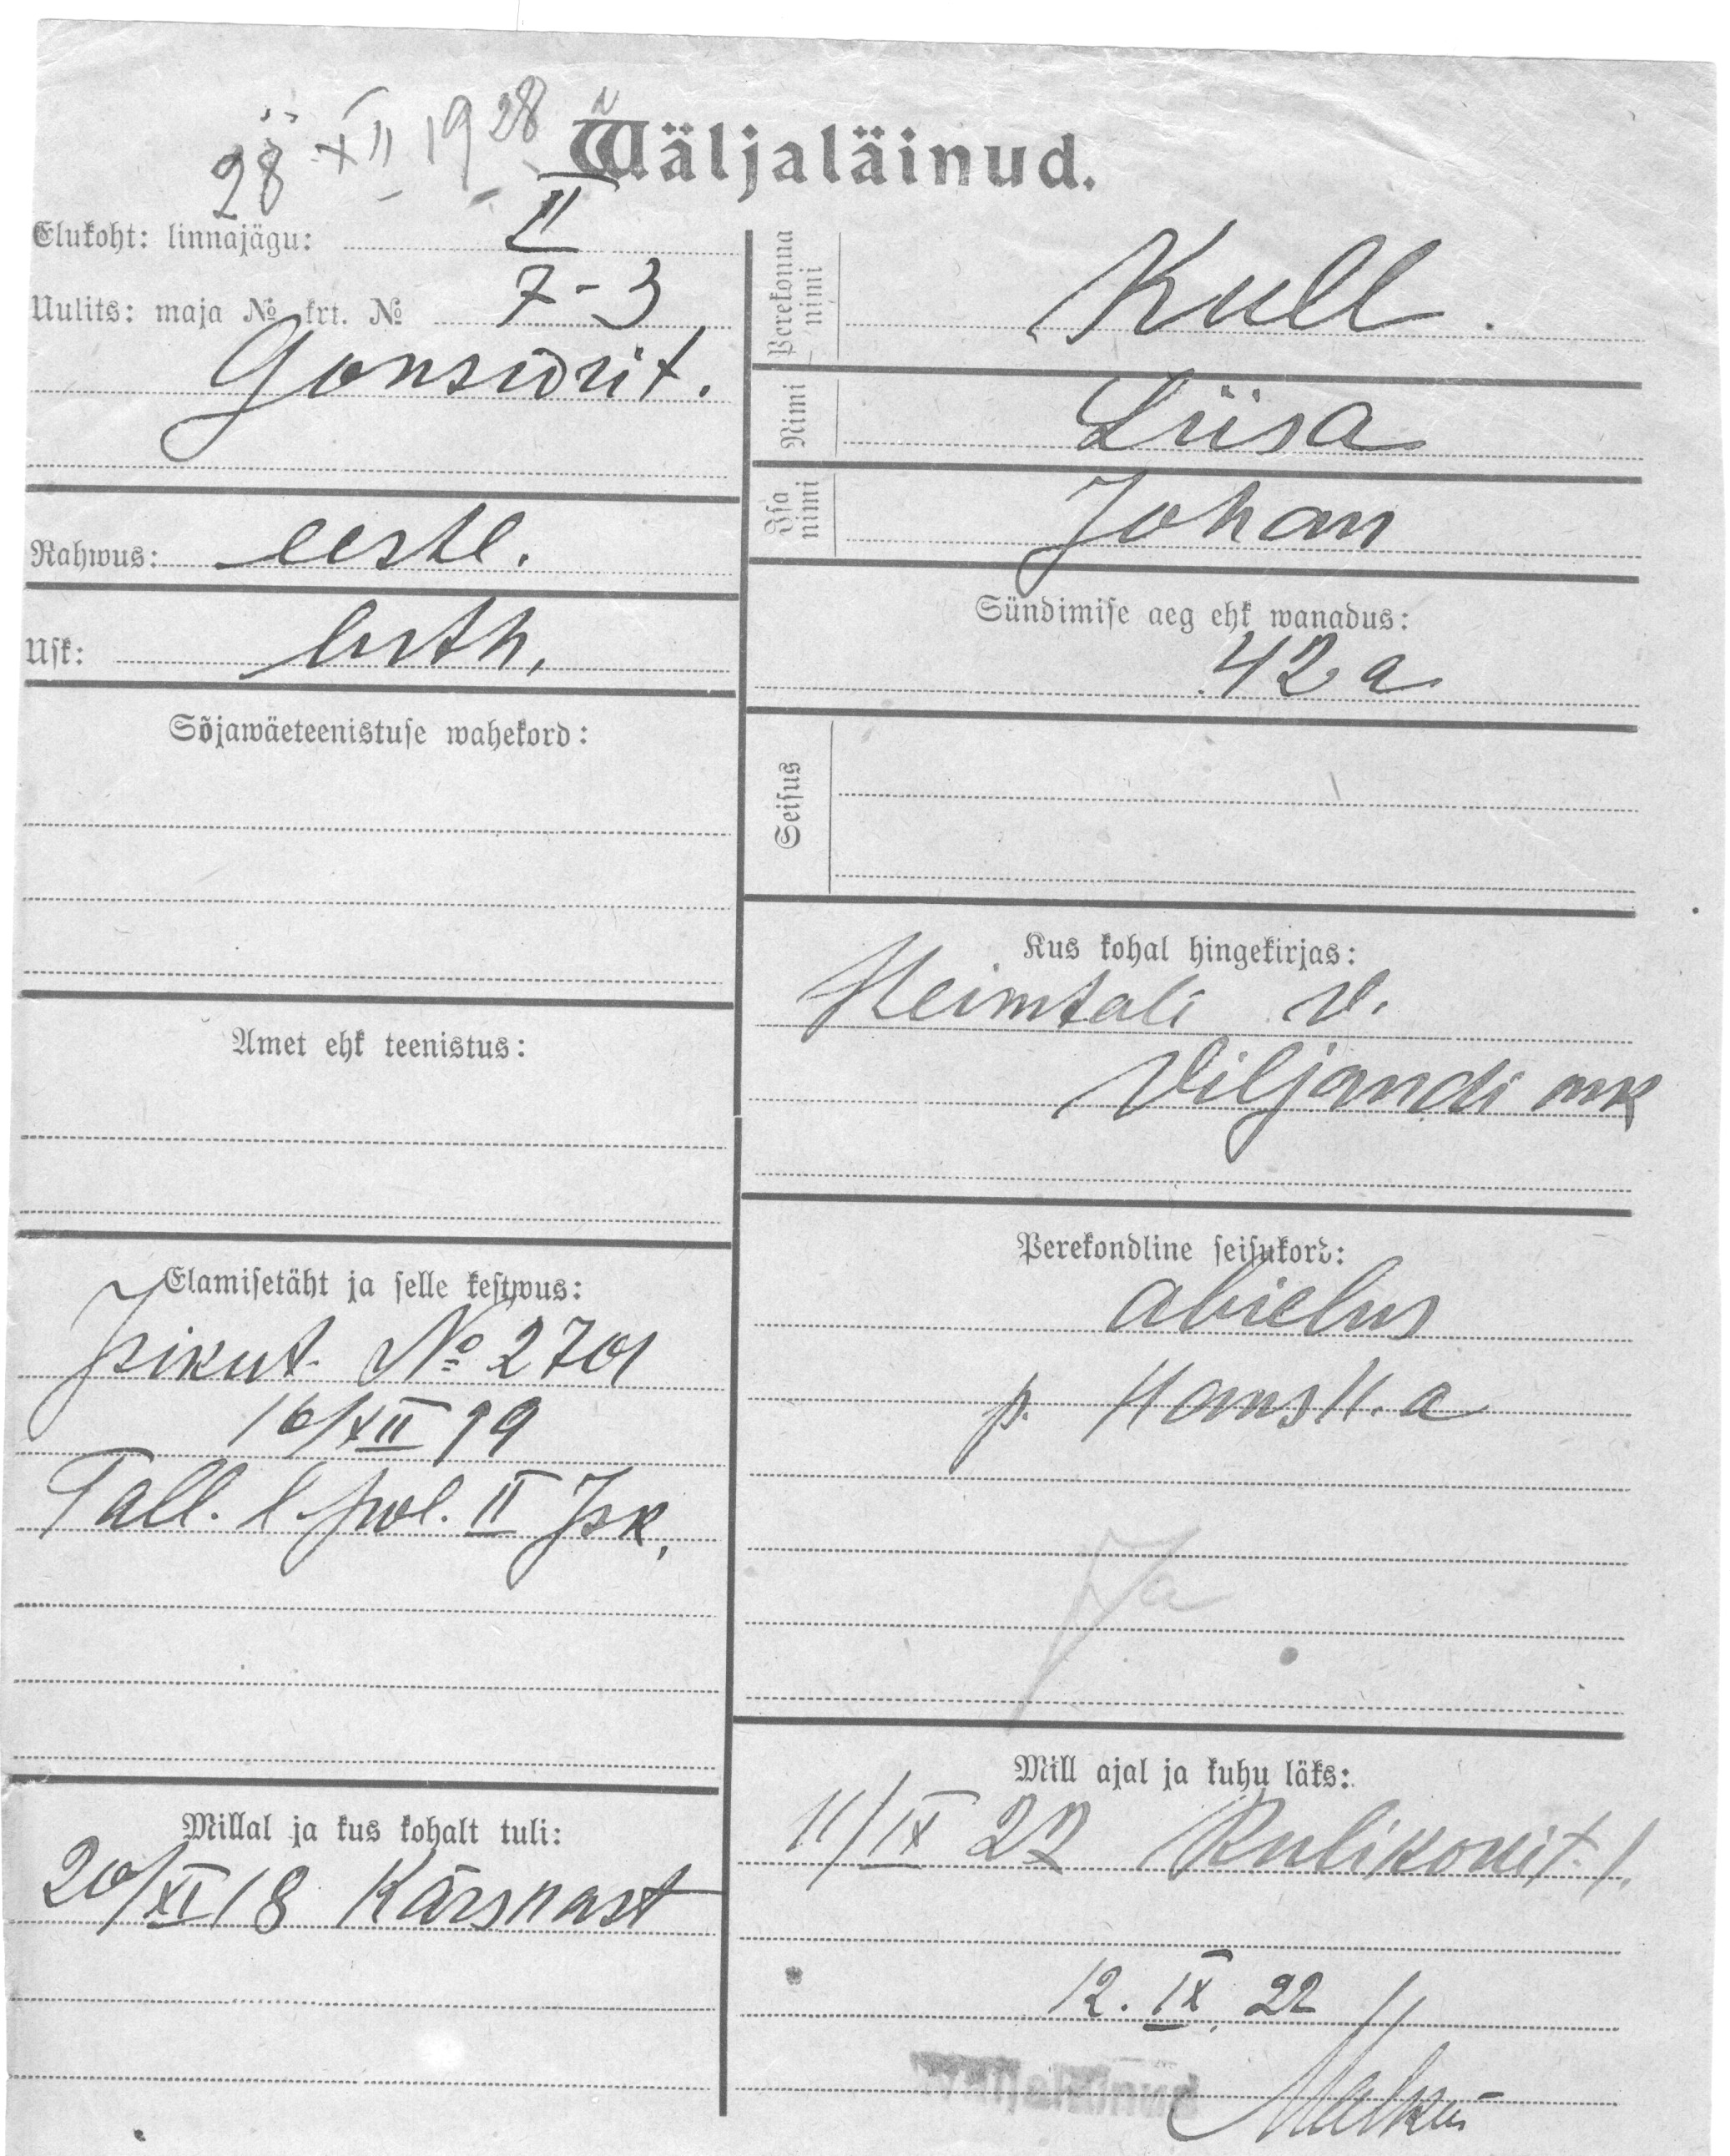 28 XII 1928
Wäljaläinud.
Elukoht: linnajägu: II
Uulits: maja № krt. № 7-3
Gonsiorit.
Rahwus: eestl.
Usk: luth,
Sõjawäeteenistuse wahekord:
Amet ehk teenistus:
Elamisetäht ja selle kestwus:
Isikut. № 2701
16/XII 19
Tall. l. pol. II Jsk,
Millal ja kus kohalt tuli:
20/XI 18 Kärsnast
Perekonna nimi
Kull.
Nimi
Liisa
Isa nimi
Johan
Sündimise aeg ehk wanadus:
42 a
Seisus
Kus kohal hingekirjas:
Heimtali v.
Viljandi mk
Perekondline seisukord:
abielus
p. Hans H. a
Ja
Mill ajal ja kuhu läks:
11/IX 22
12. IX 22